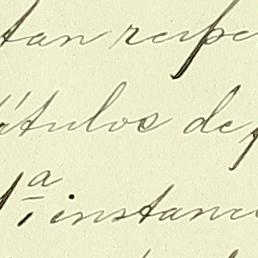 tan respe
ítulos de
1ª instanc